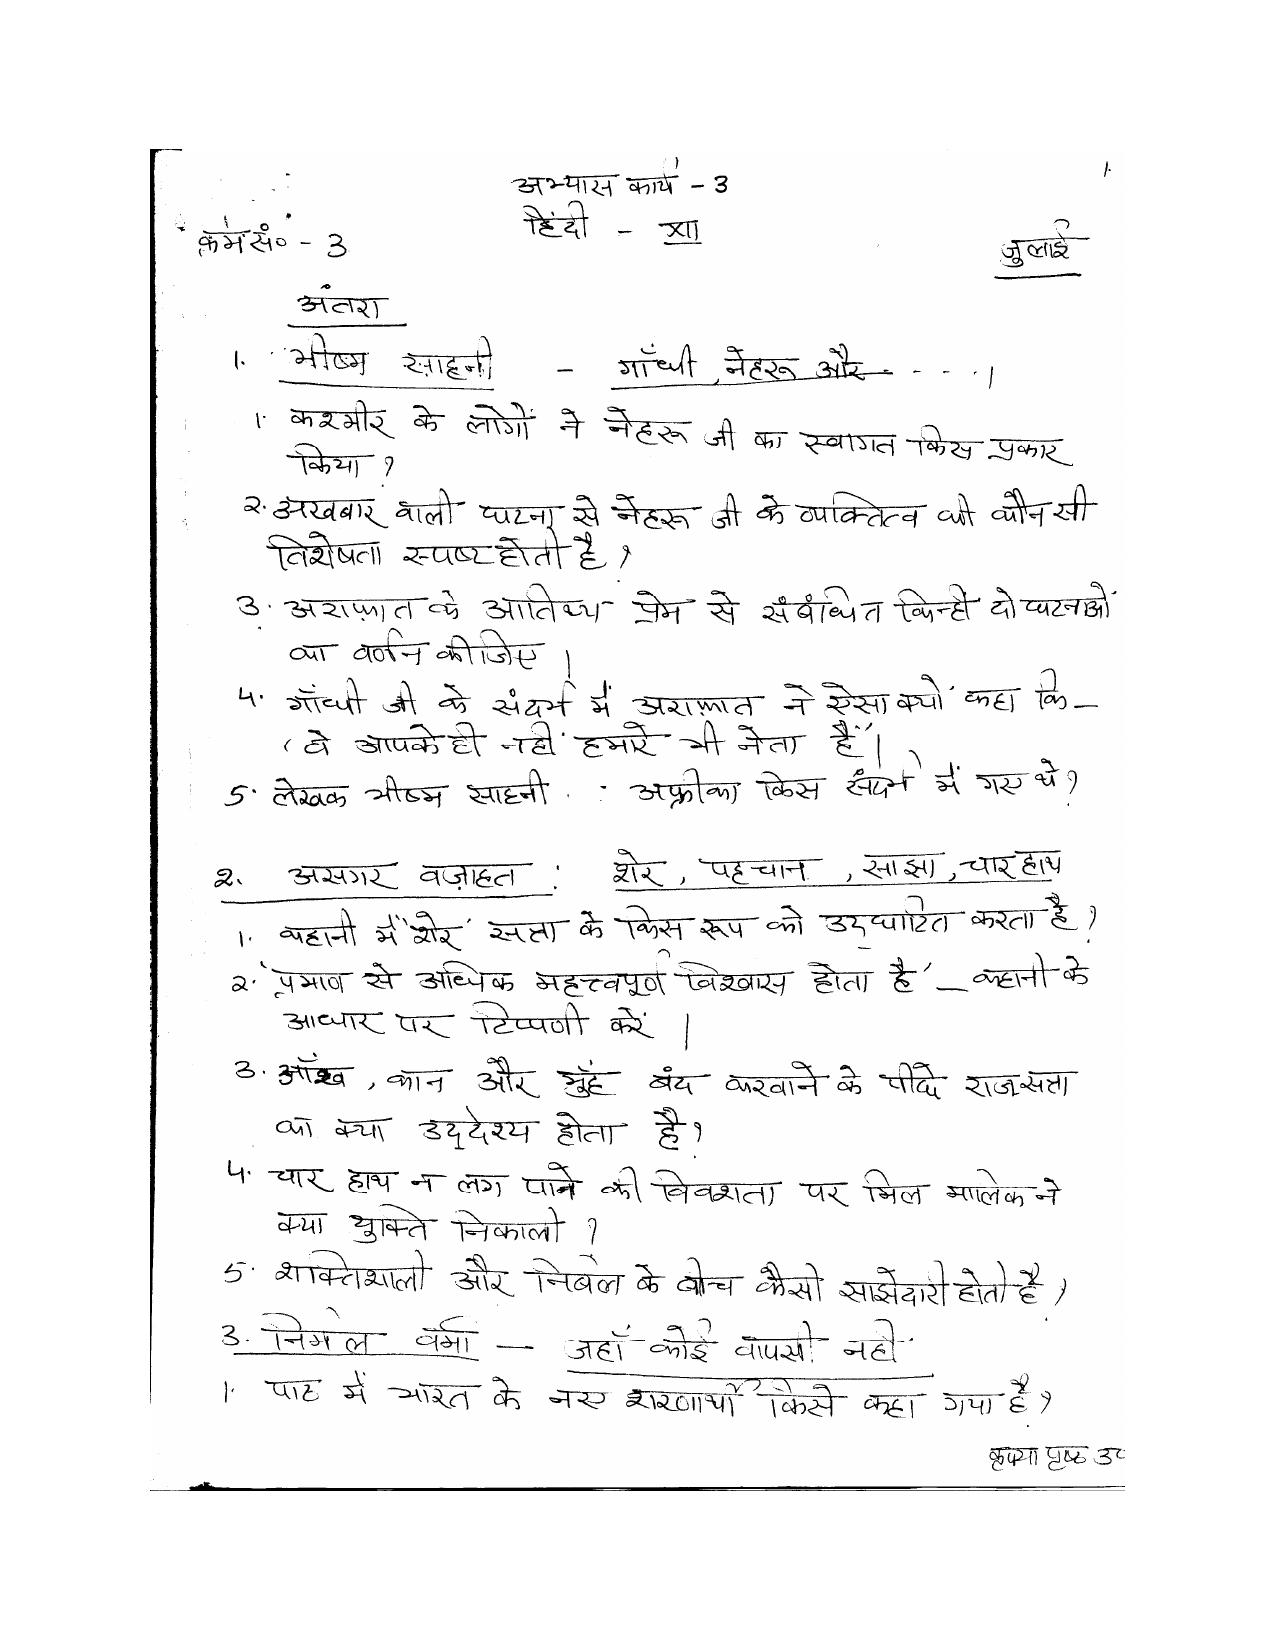 1.
अभ्यास कार्य - 3
हिंदी - XII
क्रम सं० - 3
जुलाई
अंतरा
1. भीष्म साहनी - गाँधी, नेहरू और - - - - ।
1. कश्मीर के लोगों ने नेहरू जी का स्वागत किस प्रकार
किया ?
2. अखबार वाली घटना से नेहरू जी के व्यक्तित्व की कौन सी
विशेषता स्पष्ट होती है ?
3. अराफ़ात के आतिथ्य प्रेम से संबंधित किन्हीं दो घटनाओं
का वर्णन कीजिए ।
4. गाँधी जी के संदर्भ में अराफ़ात ने ऐसा क्यों कहा कि –
'वे आपके ही नहीं हमारे भी नेता हैं' ।
5. लेखक भीष्म साहनी अफ्रीका किस संदर्भ में गए थे ?
2. असगर वज़ाहत : शेर, पहचान, साझा, चार हाथ
1. कहानी में 'शेर' सत्ता के किस रूप को उद्घाटित करता है ?
2. 'प्रमाण से अधिक महत्त्वपूर्ण विश्वास होता है' – कहानी के
आधार पर टिप्पणी करें ।
3. आँख, कान और मुँह बंद करवाने के पीछे राजसत्ता
का क्या उद्देश्य होता है ?
4. चार हाथ न लग पाने की विवशता पर मिल मालिक ने
क्या युक्ति निकाली ?
5. शक्तिशाली और निर्बल के बीच कैसी साझेदारी होती है ?
3. निर्मल वर्मा – जहाँ कोई वापसी नहीं
1. पाठ में भारत के नए शरणार्थी किसे कहा गया है ?
कृपया पृष्ठ